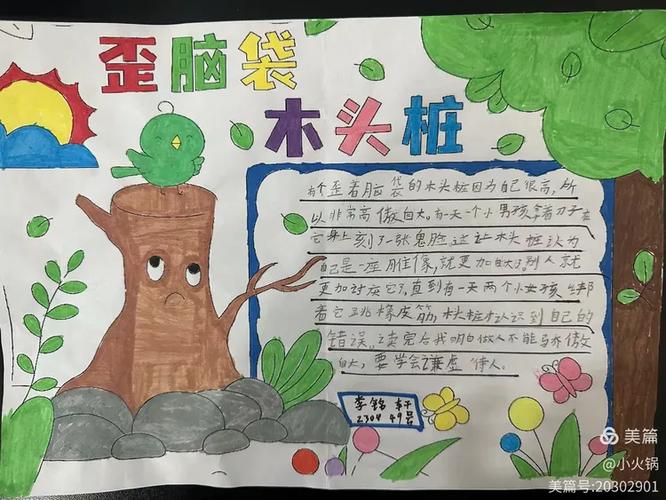 歪脑袋
木头桩
有个歪着脑袋的木头桩因为自己很高,所
以非常高傲自大。有一天一个小男孩拿着刀子在
它身上刻了一张鬼脸,这让木头桩认为
自己是一座雕像,就更加自大了。别人就
更加讨厌它了。直到有一天两个小女孩
着它跳橡皮筋,木头桩才认识到自己的
错误。读完后我明白做人不能骄傲
自大,要学会谦虚待人。
李铭轩
2304 49号
美篇
@小火锅
美篇号:20302901